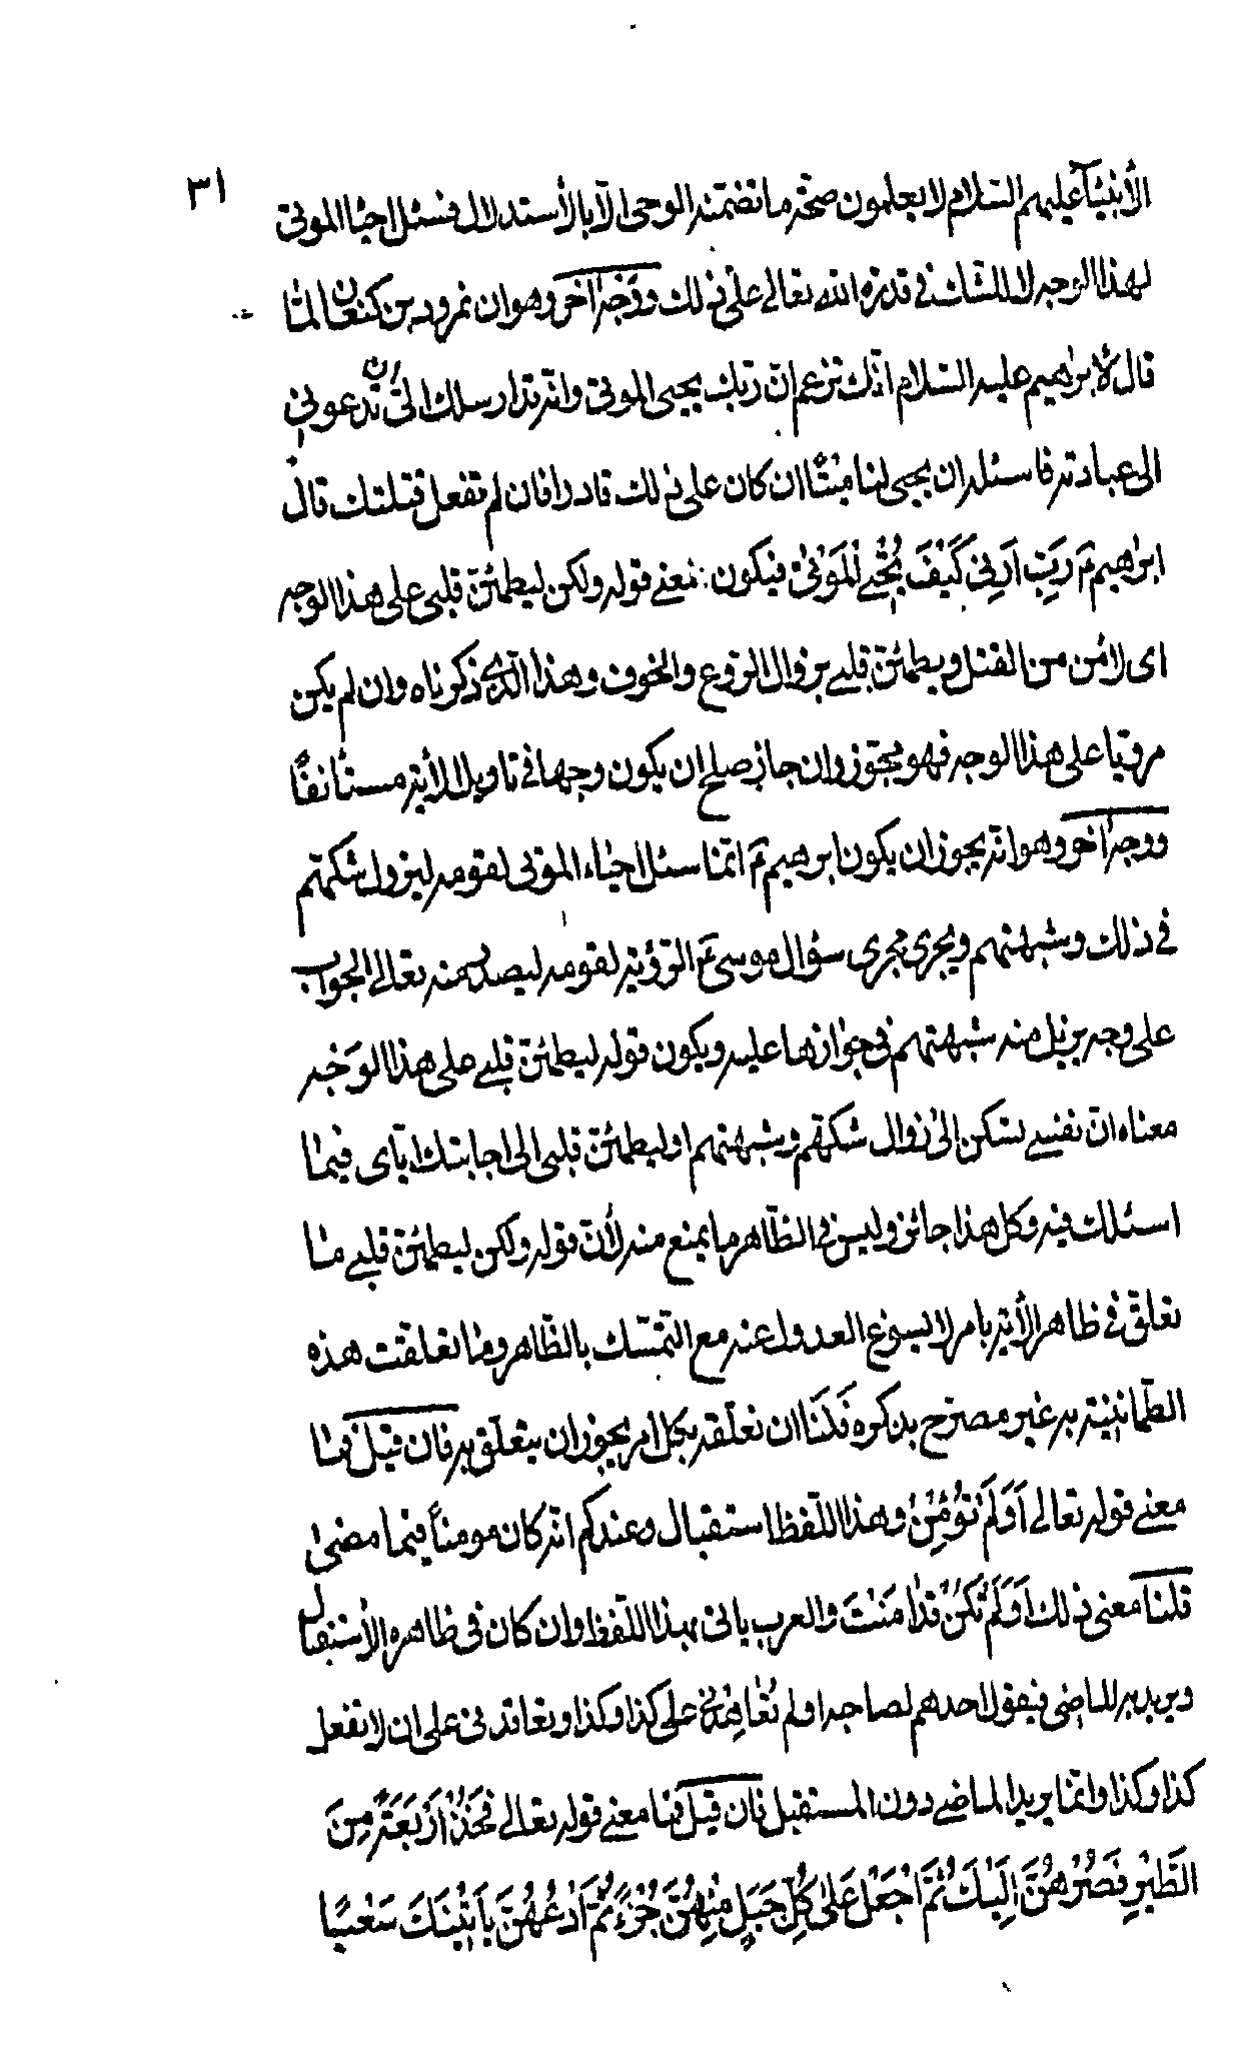 ٣١
الأنبيآء عليهم السّلام لا يعلمون صحّة ما تضمّنه الوحى الّا بالأستدلال فسئل احيآ الموتى
لهذا الوجه لا للشّك فى قدرة الله تعالى على ذلك ووجه اخر وهو ان نمرود بن كنعان لمّا
قال لأبرهيم عليه السّلام انّك تزعم انّ ربّك يحيى الموتى وانّه قد ارسلك الىّ ان تدعونى
الى عبادته فاسئله ان يحيى لنا ميتًا ان كان على ذلك قادرا فان لم تفعل قتلتك قال
ابرهيم عَ رَبِّ اَرِنِى كَيْفَ تُحْيِى الْمَوْتٰى فيكون معنى قوله ولكن ليطمئنّ قلبى على هذا الوجه
اى لأمن من القتل ويطمئنّ قلبى بزوال الرّوع والخوف وهذا الّذى ذكرناه وان لم يكن
مرويّا على هذا الوجه فهو مجوّز وان جاز صلح ان يكون وجها فى تاويل الأية مستأنفًا
ووجه اخر وهو انّه يجوز ان يكون ابرهيم عَ انّما سئل احياء الموتى لقومه ليزول شكّهم
فى ذلك وشبهتهم ويجرى مجرى سؤال موسى عَ الرّؤية لقومه ليصدر منه تعالى الجواب
على وجه يزيل منه شبهتهم فى جوازها عليه ويكون قوله ليطمئنّ قلبى على هذا الوجه
معناه انّ نفسى تسكن الى زوال شكّهم وشبهتهم او ليطمئنّ قلبى الى اجابتك ايّاى فيما
اسئلك فيه وكل هذا جائز وليس فى الظّاهر ما يمنع منه لأنّ قوله ولكن ليطمئنّ قلبى ما
تعلّق فى ظاهر الأية بامر لا يسوغ العدول عنه مع التّمسّك بالظّاهر وما تعلقت هذه
الطّمانينة به غير مصرّح بذكره قلنا ان تعلّقه بكلّ امر يجوز ان يتعلّق به فان قيل فما
معنى قوله تعالى اَوَلَمْ تُؤْمِنْ وهذا اللّفظ استقبال وعندكم انّه كان مومناً فيما مضى
قلنا معنى ذلك اَوَلَمْ تَكُنْ قد اٰمَنْتَ والعرب ياتى بهذا اللّفظ وان كان فى ظاهره الأستقبال
ويريد به الماضى فيقول احدهم لصاحبه اولم تُعاهِدْنى على كذا وكذا وتعاقدنى على ان لا تفعل
كذا وكذا وانّما يريد الماضى دون المستقبل فان قيل فما معنى قوله تعالى فَخُذْ اَرْبَعَةً مِنَ
الطَّيْرِ فَصُرْهُنَّ اِلَيْكَ ثُمَّ اجْعَلْ عَلٰى كُلِّ جَبَلٍ مِنْهُنَّ جُزْءً ثُمَّ ادْعُهُنَّ يَاْتِيْنَكَ سَعْيًا